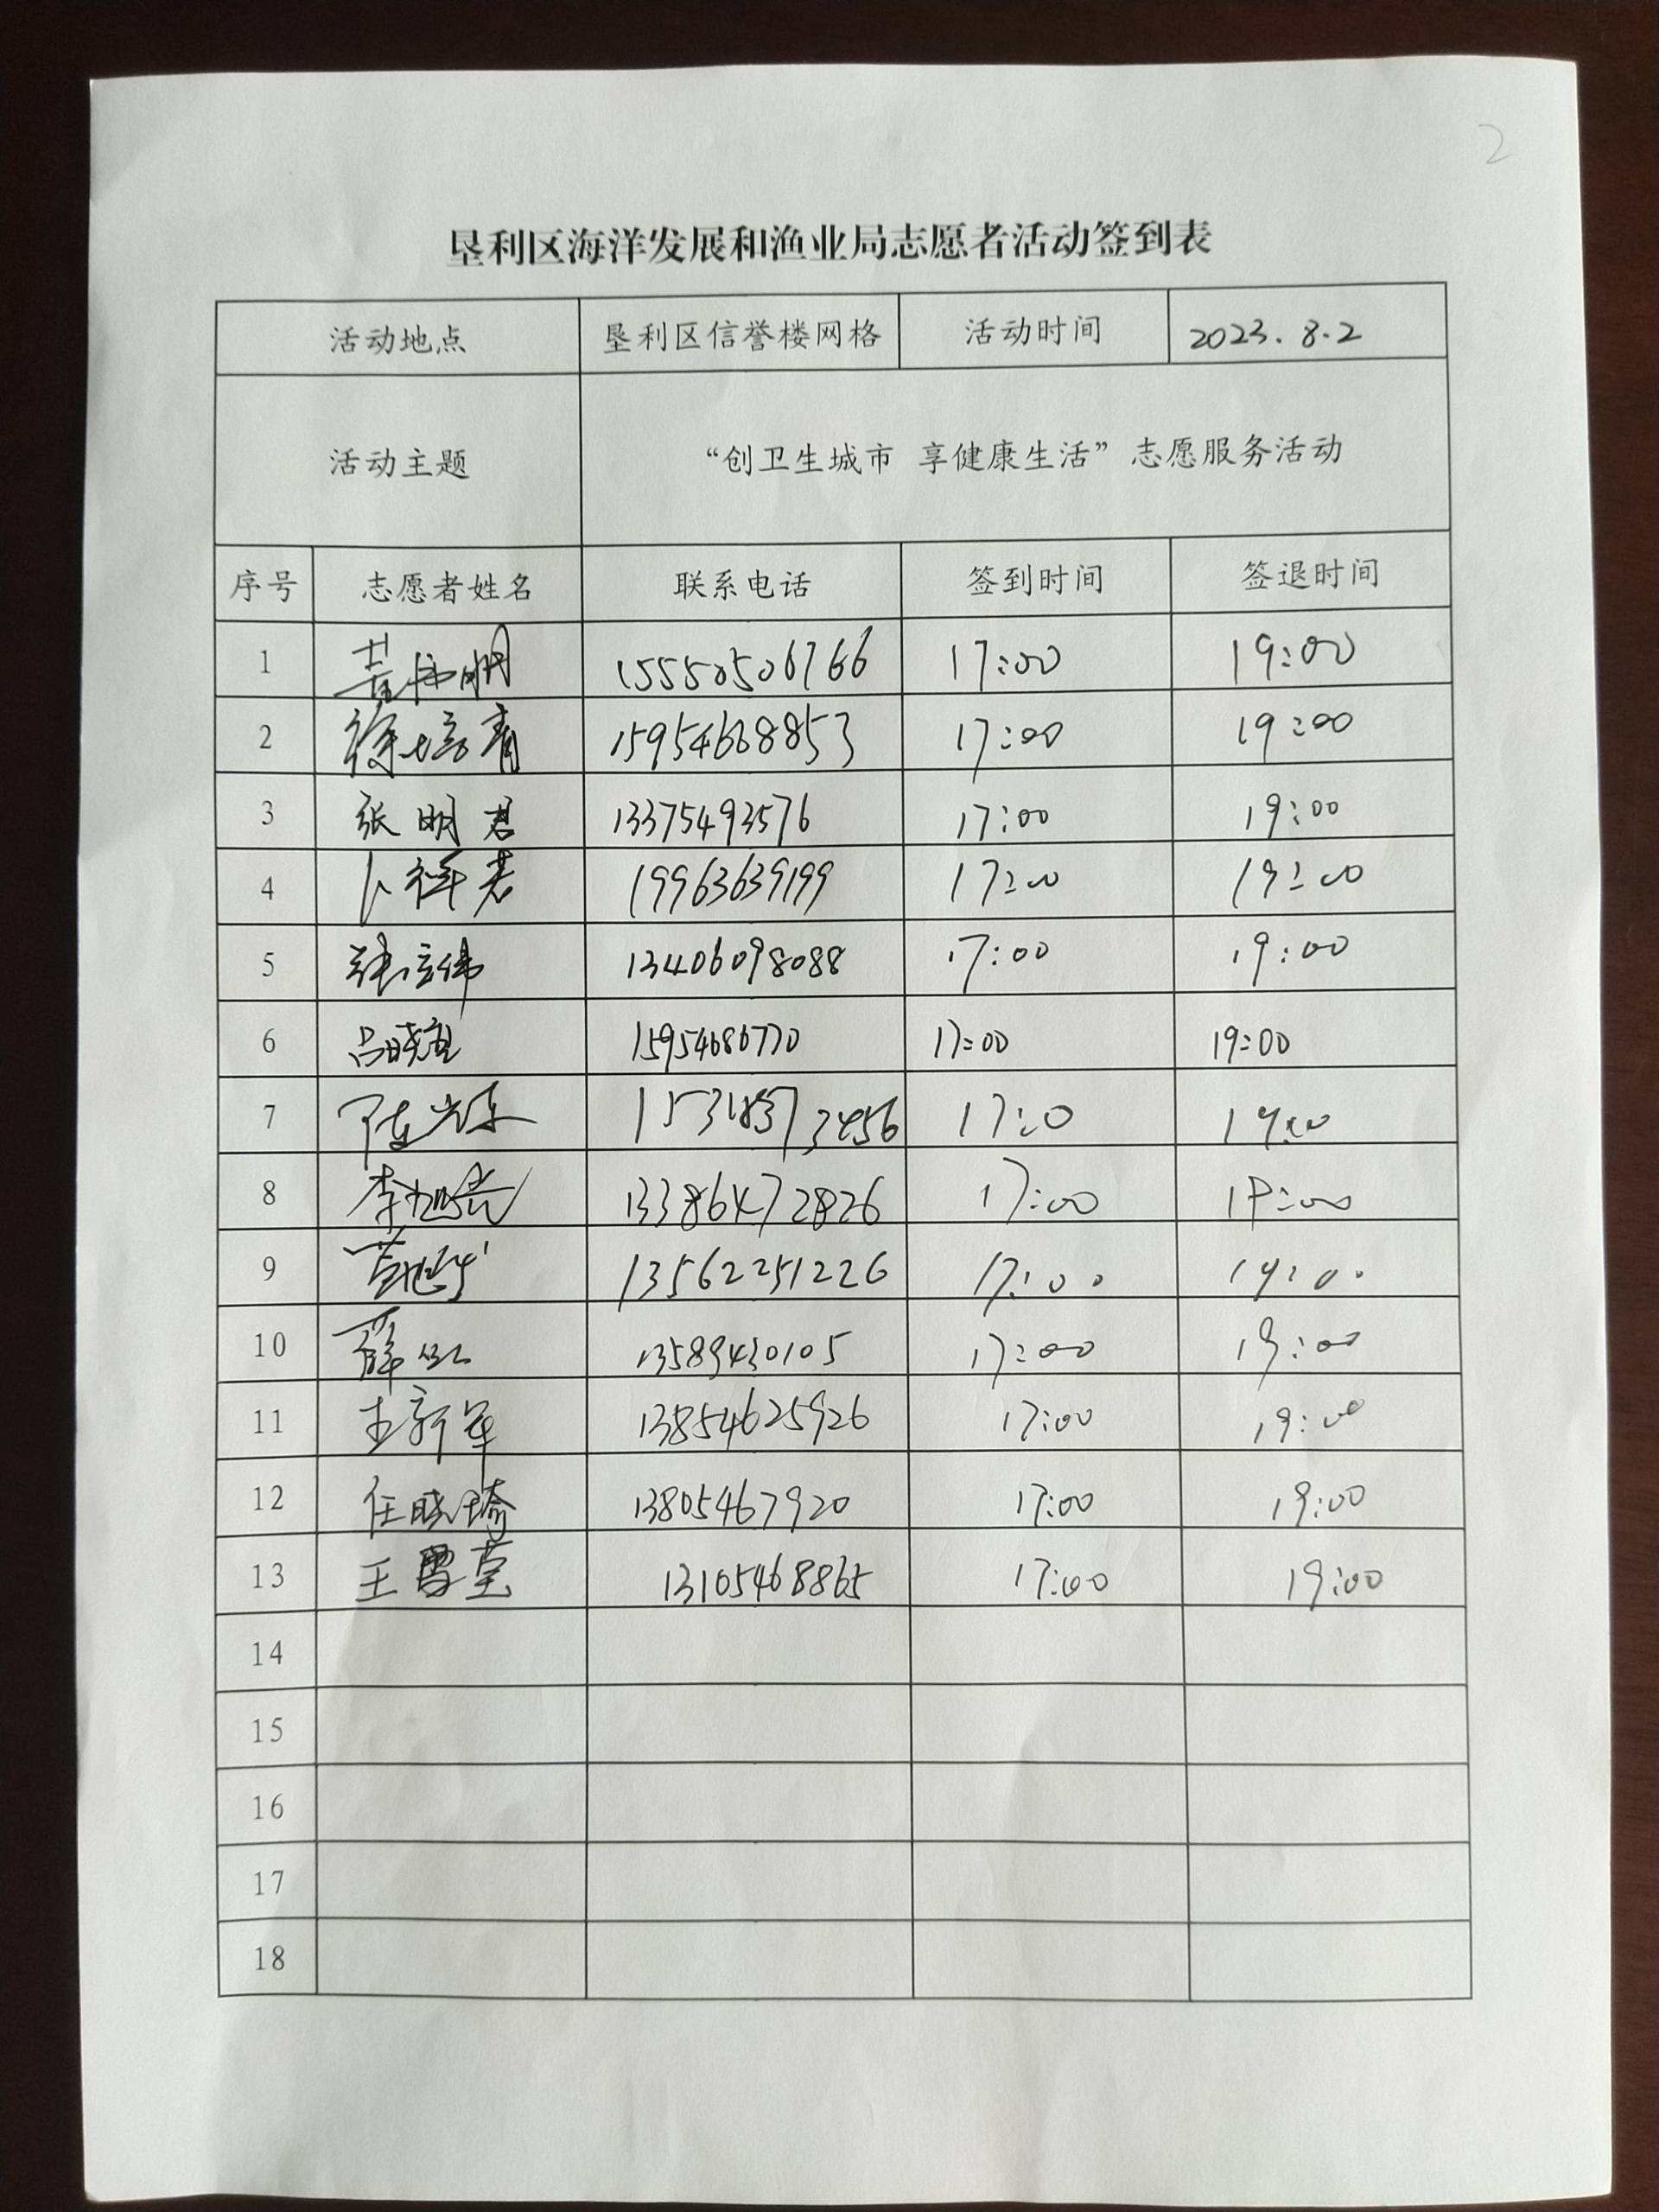 2
垦利区海洋发展和渔业局志愿者活动签到表
活动地点 垦利区信誉楼网格 活动时间 2023.8.2
活动主题 “创卫生城市 享健康生活”志愿服务活动
序号 志愿者姓名 联系电话 签到时间 签退时间
1 15550506766 17:00 19:00
2 徐培青 15954668853 17:00 19:00
3 张明君 13375493576 17:00 19:00
4 卜祥君 19963639199 17:00 19:00
5 13406098088 17:00 19:00
6 15954686770 17:00 19:00
7 17:00 19:00
8 李旭光 13386472826 17:00 19:00
9 13562251226 17:00 19:00
10 薛红 13589430105 17:00 19:00
11 王新军 13854625926 17:00 19:00
12 任晓琦 13805467920 17:00 19:00
13 王雪莹 13105468865 17:00 19:00
14
15
16
17
18